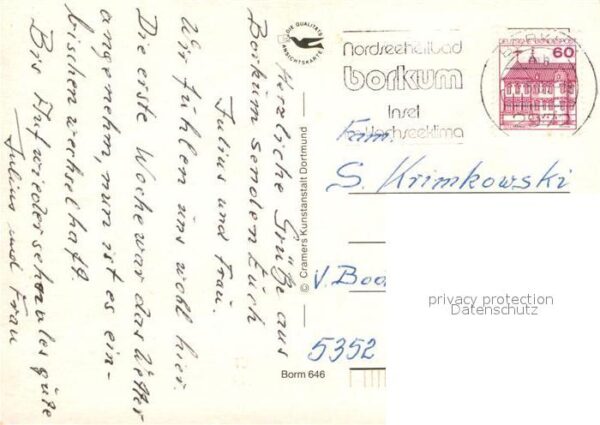 Herzliche Grüße aus
Borkum senden Euch
Julius und Frau.
Wir fühlen uns wohl hier.
Die erste Woche war das Wetter
angenehm, nun ist es ein-
bischen wechselhaft.
Bis Auf wiedersehen alles gute
Julius und Frau
DIE QUALITÄTS
ANSICHTSKARTE
© Cramers Kunstanstalt Dortmund
Borm 646
Nordseeheilbad
borkum
Insel
Hochseeklima
60
2972
Fam.
S. Krimkowski
V. Boo
5352
privacy protection
Datenschutz